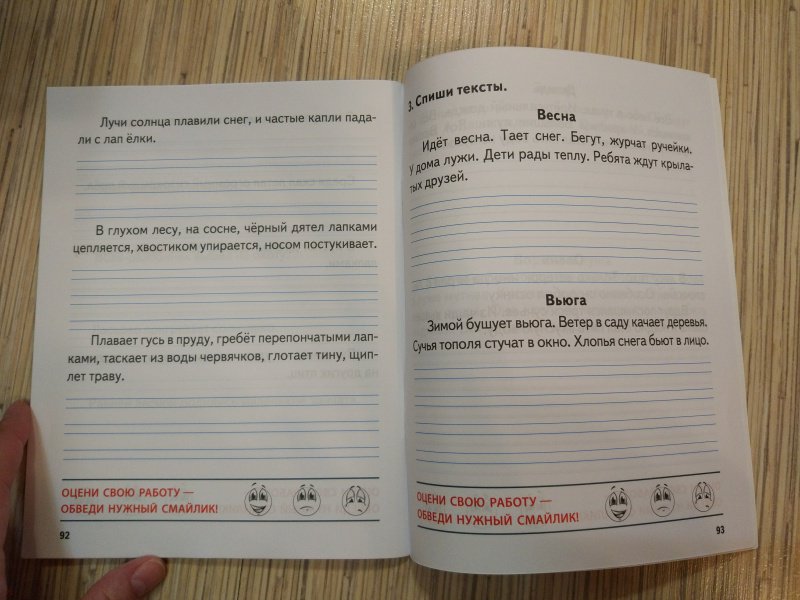 Лучи солнца плавили снег, и частые капли пада-
ли с лап ёлки.
В глухом лесу, на сосне, чёрный дятел лапками
цепляется, хвостиком упирается, носом постукивает.
Плавает гусь в пруду, гребёт перепончатыми лап-
ками, таскает из воды червячков, глотает тину, щип-
лет траву.
ОЦЕНИ СВОЮ РАБОТУ —
ОБВЕДИ НУЖНЫЙ СМАЙЛИК!
92
3. Спиши тексты.
Весна
Идёт весна. Тает снег. Бегут, журчат ручейки.
У дома лужи. Дети рады теплу. Ребята ждут крыла-
тых друзей.
Вьюга
Зимой бушует вьюга. Ветер в саду качает деревья.
Сучья тополя стучат в окно. Хлопья снега бьют в лицо.
ОЦЕНИ СВОЮ РАБОТУ —
ОБВЕДИ НУЖНЫЙ СМАЙЛИК!
93